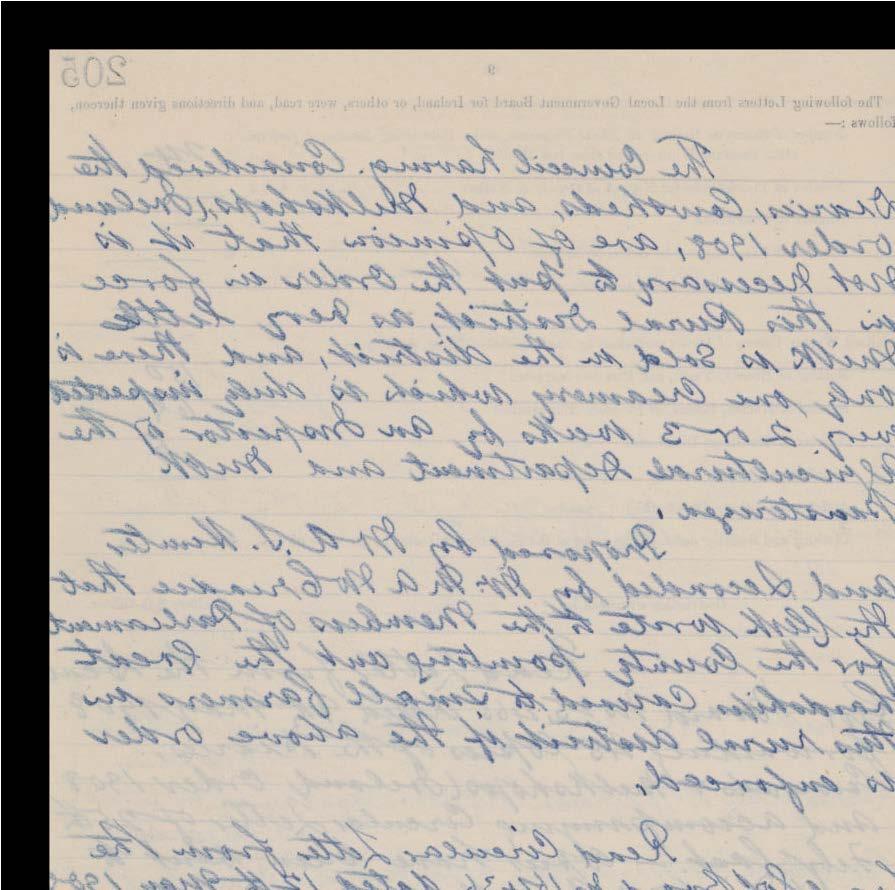 205
9
The following Letters from the Local Government Board for Ireland, or others, were read, and directions given thereon,
follows :—
The Council having Considered the
Dairies, Cowsheds, and Milkshops, (Ireland
Order 1908, are of opinion that it is
not necessary to put the Order in force
in this Rural District, as very little
Milk is sold in the district, and there is
only one Creamery which is duly inspected
every 2 or 3 weeks by an Inspector of the
Agricultural Department and Milk
Proposed by
and Seconded by that
the Clerk wrote to the Members of Parliament
for the County pointing out the Great
hardships Caused to Small farmers in
this rural district if the above order
is enforced.
Read Circular Letter from the
dated